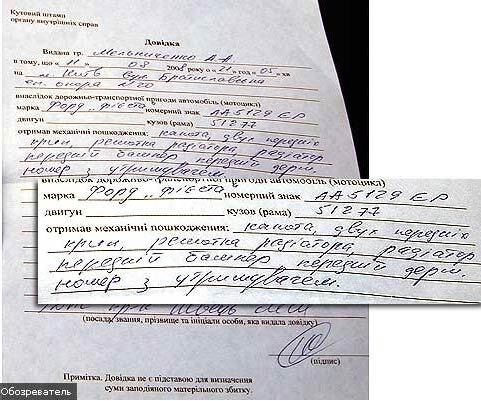 Кутовий штамп
органу внутрішніх справ
Довідка
Видана гр. Мельниченко А.А.
в тому, що " 11 " 08 2008 року о " 21 " год " 05 " хв
на м. Київ вул. Братиславська
ел. опора №20
внаслідок дорожньо-транспортної пригоди автомобіль (мотоцикл)
марка Форд „фієста" номерний знак АА 5129 ЕР
двигун кузов (рама) 51277
отримав механічні пошкодження: капота, двух передніх
крил, решотка радіатора, радіатор
передній бампер передній держ.
номер з утримувачем.
внаслідок дорожньо-транспортної пригоди автомобіль (мотоцикл)
марка Форд „фієста" номерний знак АА 5129 ЕР
двигун кузов (рама) 51277
отримав механічні пошкодження: капота, двух передніх
крил, решотка радіатора, радіатор
передній бампер передній держ.
номер з утримувачем.
(посада, звання, прізвище та ініціали особи, яка видала довідку)
(підпис)
Примітка. Довідка не є підставою для визначення
суми заподіяного матеріального збитку.
Обозреватель